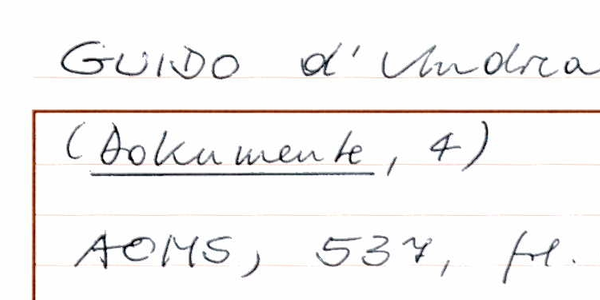 GUIDO d'Andrea
(Dokumente, 4)
AOMS, 537, fol.